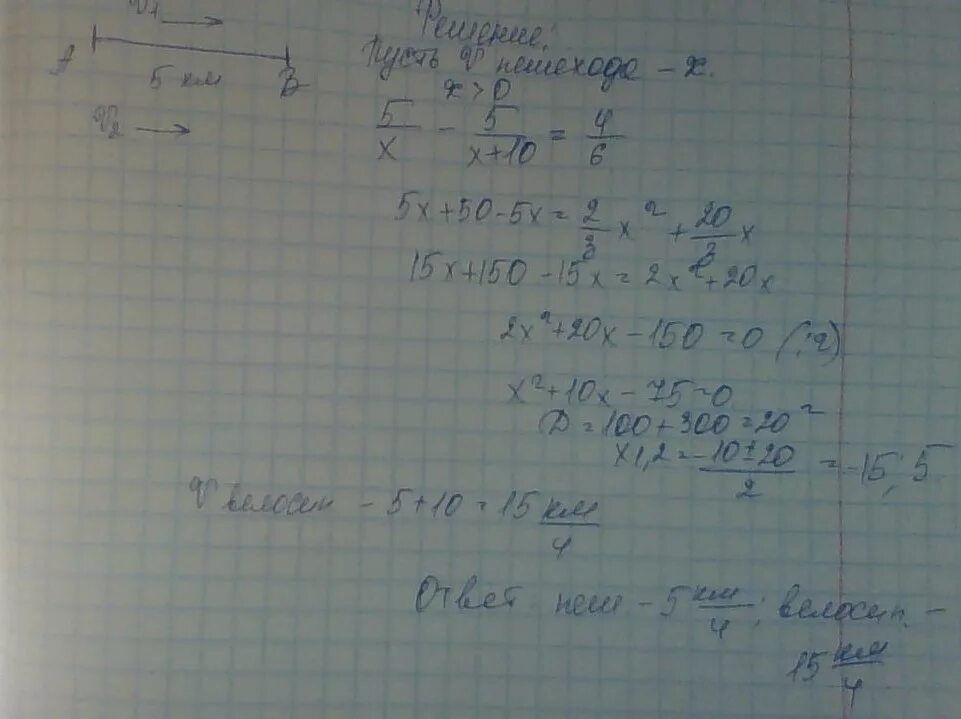 V1 →
A 5 км B
V2 →
Решение:
Пусть V пешехода - x.
x > 0
5/x - 5/(x+10) = 4/6
5x+50-5x = 2/3 x² + 20/3 x
15x+150-15x = 2x²+20x
2x²+20x-150=0 (:2)
x²+10x-75=0
D=100+300=20²
x1,2 = (-10±20)/2 = -15; 5
V велосип - 5+10=15 км/ч
Ответ пеш - 5 км/ч; велосип. -
15 км/ч